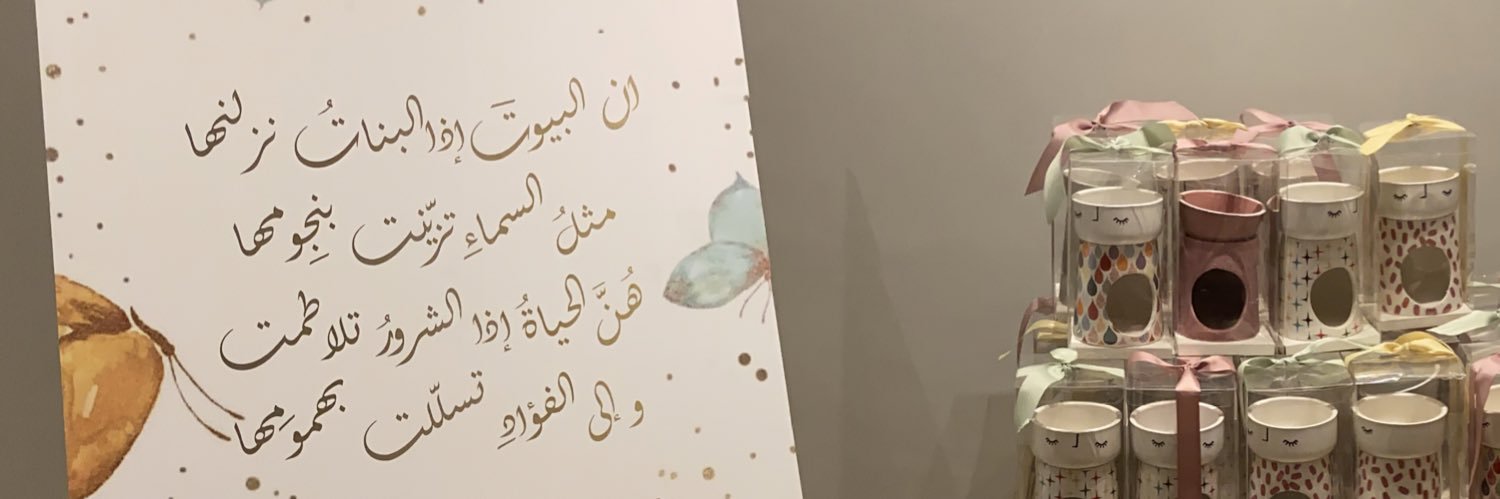 ان البيوتَ إذا البناتُ نزلنها
مثلُ السماءِ تزيّنت بنجِومها
هُنَّ الحياةُ إذا الشرورُ تلاطمت
و إلى الفؤادِ تسلّلت بهمومِها